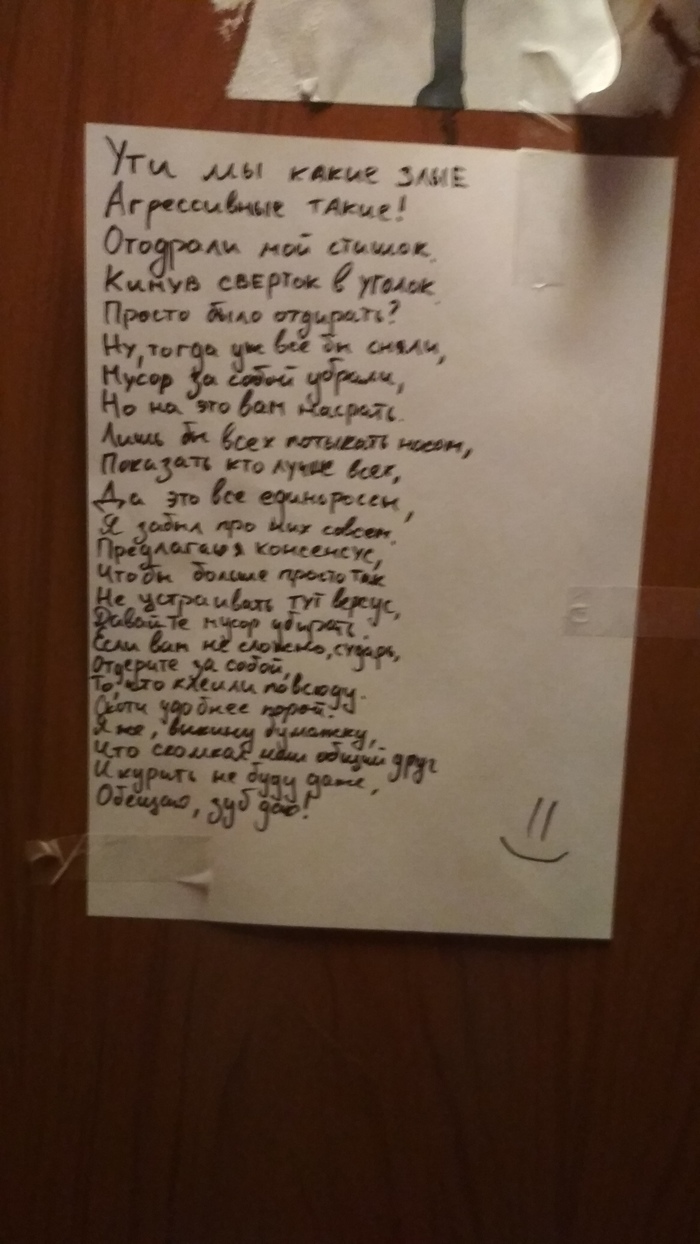 Ути мы какие злые
Агрессивные такие!
Отодрали мой стишок,
Кинув сверток в уголок.
Просто было отдирать?
Ну, тогда уж всё бы сняли,
Мусор за собой убрали,
Но на это вам насрать.
Лишь бы всех потыкать носом,
Показать кто лучше всех,
Да это все единоросы,
Я забыл про них совсем.
Предлагаю я консенсус,
Чтобы больше просто так
Не устраивать тут версус,
Давайте мусор убирать.
Если вам не сложно, сударь,
Отдерите за собой,
То, что клеили повсюду.
удобнее порой.
Я же, выкину бумажку,
Что скомкал наш общий друг
И курить не буду даже,
Обещаю, зуб даю!